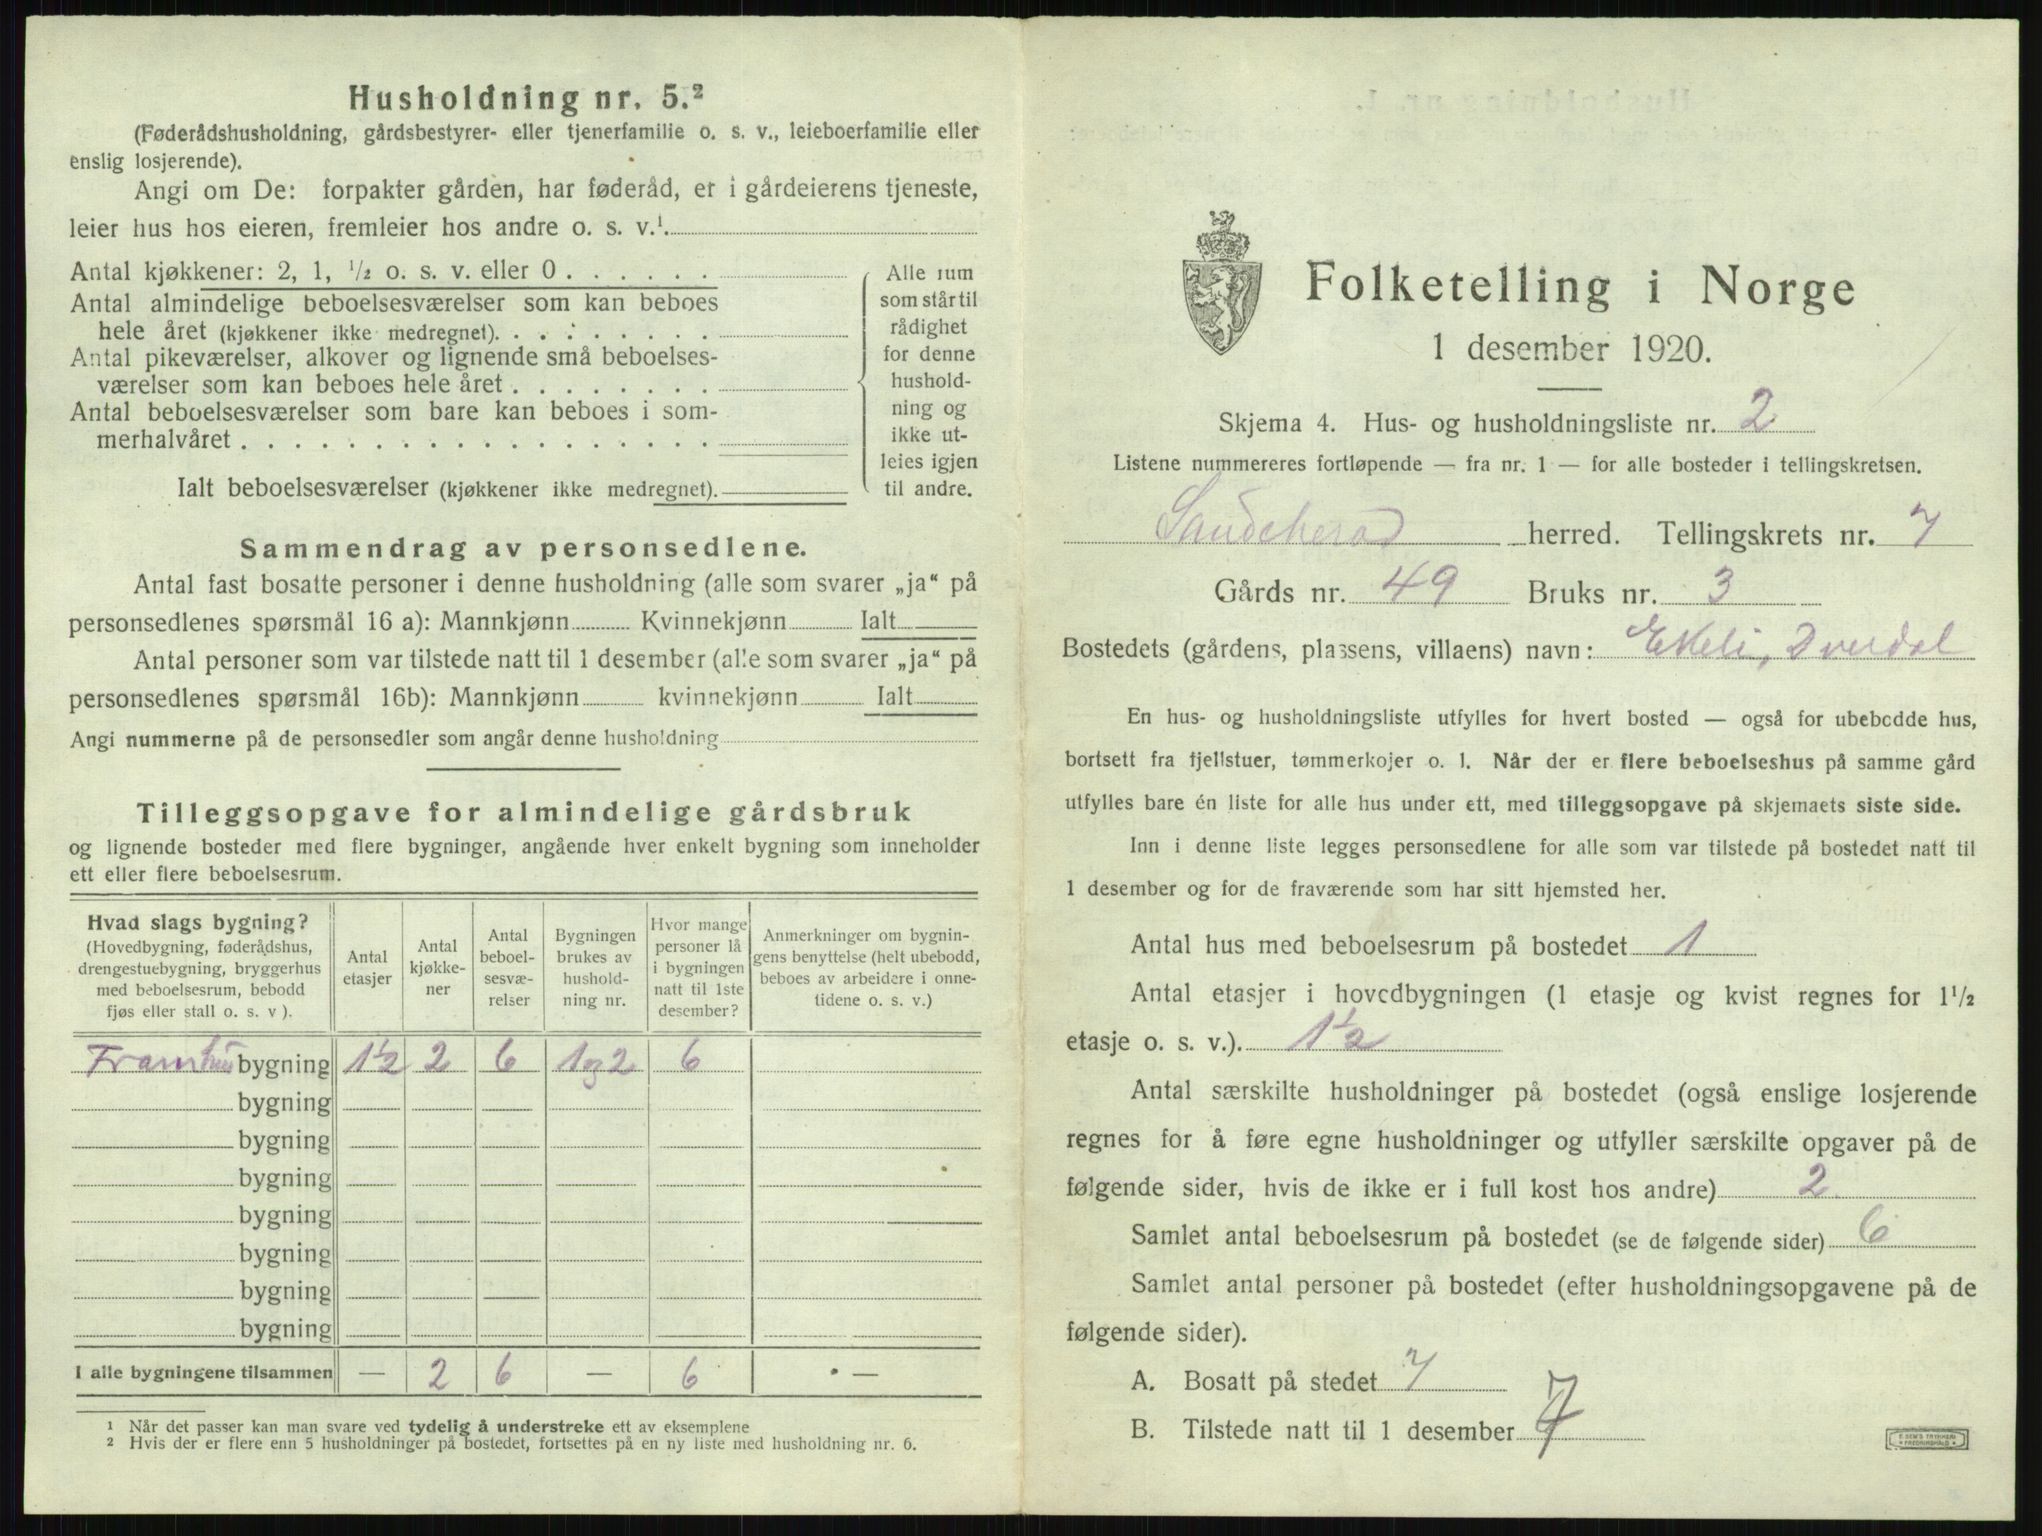 Husholdning nr. 5.²
(Føderådshusholdning, gårdsbestyrer- eller tjenerfamilie o. s. v., leieboerfamilie eller
enslig losjerende).
Angi om De: forpakter gården, har føderåd, er i gårdeierens tjeneste,
leier hus hos eieren, fremleier hos andre o. s. v.¹.
Antal kjøkkener: 2, 1, ½ o. s. v. eller 0 . . . . . .
Antal almindelige beboelsesværelser som kan beboes
hele året (kjøkkener ikke medregnet). . . . . . . . .
Antal pikeværelser, alkover og lignende små beboelses-
værelser som kan beboes hele året . . . . . . . .
Antal beboelsesværelser som bare kan beboes i som-
merhalvåret . . . . . . . . . . . . . . . . . .
Ialt beboelsesværelser (kjøkkener ikke medregnet).
Alle rum
som står til
rådighet
for denne
hushold-
ning og
ikke ut-
leies igjen
til andre.
Sammendrag av personsedlene.
Antal fast bosatte personer i denne husholdning (alle som svarer „ja“ på
personsedlenes spørsmål 16 a): Mannkjønn Kvinnekjønn Ialt
Antal personer som var tilstede natt til 1 desember (alle som svarer „ja“ på
personsedlenes spørsmål 16b): Mannkjønn kvinnekjønn Ialt
Angi nummerne på de personsedler som angår denne husholdning
Tilleggsopgave for almindelige gårdsbruk
og lignende bosteder med flere bygninger, angående hver enkelt bygning som inneholder
ett eller flere beboelsesrum.
Hvad slags bygning?
(Hovedbygning, føderådshus,
drengestuebygning, bryggerhus
med beboelsesrum, bebodd
fjøs eller stall o. s. v ).
Antal
etasjer
Antal
kjøkke-
ner
Antal
beboel-
sesvæ-
relser
Bygningen
brukes av
hushold-
ning nr.
Hvor mange
personer lå
i bygningen
natt til 1ste
desember?
Anmerkninger om bygnin-
gens benyttelse (helt ubebodd,
beboes av arbeidere i onne-
tidene o. s. v.)
bygning 1½ 2 6 1 og 2 6
bygning
bygning
bygning
bygning
bygning
bygning
bygning
I alle bygningene tilsammen — 2 6 — 6 —
¹ Når det passer kan man svare ved tydelig å understreke ett av eksemplene
² Hvis der er flere enn 5 husholdninger på bostedet, fortsettes på en ny liste med husholdning nr. 6.
Folketelling i Norge
1 desember 1920.
Skjema 4. Hus- og husholdningsliste nr. 2
Listene nummereres fortløpende — fra nr. 1 — for alle bosteder i tellingskretsen.
Saudeherad herred. Tellingskrets nr. 7
Gårds nr. 49 Bruks nr. 3
Bostedets (gårdens, plassens, villaens) navn: Ekeli, Dverdal
En hus- og husholdningsliste utfylles for hvert bosted — også for ubebodde hus,
bortsett fra fjellstuer, tømmerkojer o. l. Når der er flere beboelseshus på samme gård
utfylles bare én liste for alle hus under ett, med tilleggsopgave på skjemaets siste side.
Inn i denne liste legges personsedlene for alle som var tilstede på bostedet natt til
1 desember og for de fraværende som har sitt hjemsted her.
Antal hus med beboelsesrum på bostedet 1
Antal etasjer i hovedbygningen (1 etasje og kvist regnes for 1½
etasje o. s. v.). 1½
Antal særskilte husholdninger på bostedet (også enslige losjerende
regnes for å føre egne husholdninger og utfyller særskilte opgaver på de
følgende sider, hvis de ikke er i full kost hos andre) 2
Samlet antal beboelsesrum på bostedet (se de følgende sider) 6
Samlet antal personer på bostedet (efter husholdningsopgavene på de
følgende sider).
A. Bosatt på stedet 7
B. Tilstede natt til 1 desember 7
E. SEM'S TRYKKERI
FREDRIKSHALD